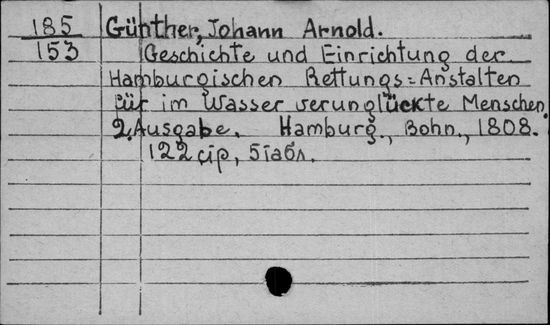 185 Günther, Johann Arnold.
153 Geschichte und Einrichtung der
Hamburgischen Rettungs=Anstalten
für im Wasser verunglückte Menschen.
2. Ausgabe. Hamburg., Bohn., 1808.
122 стр, 5 табл.